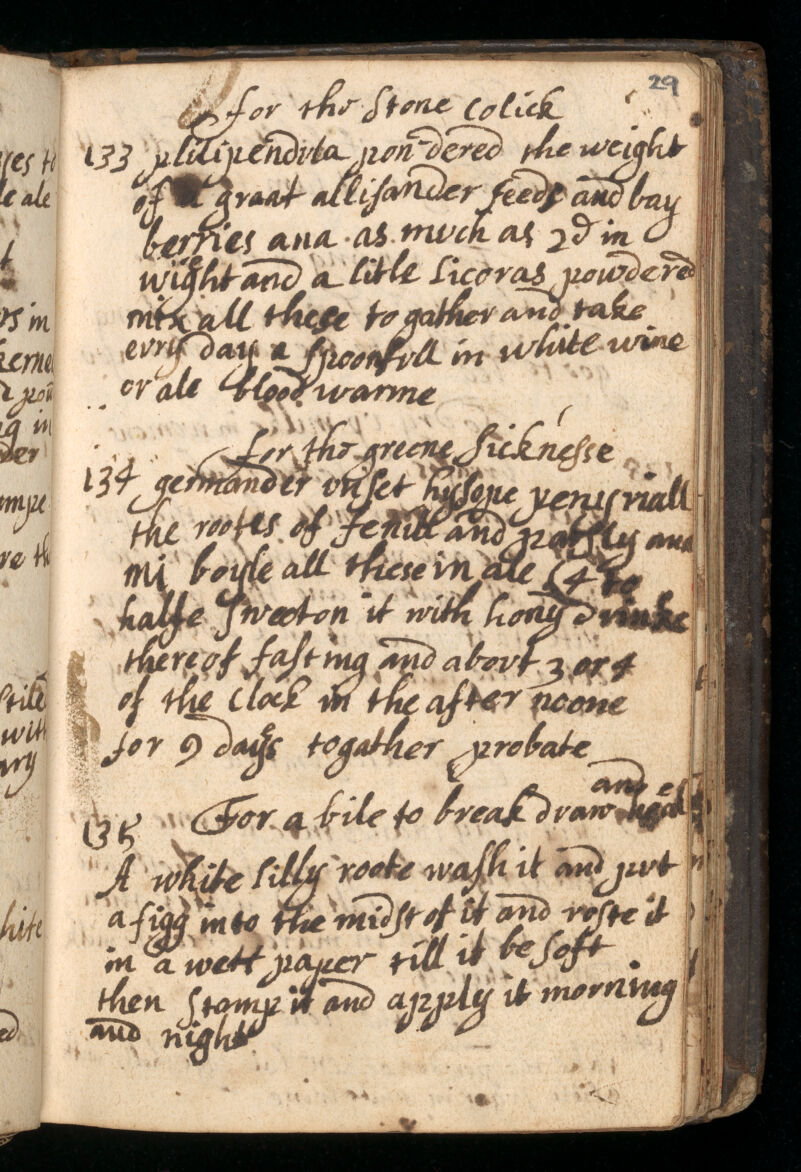 29
for the Stone Colick
133 philipendvla pondered the weight
of a graat allisander seeds and bay
berries ana as mvch as 2d in
wieght and a litle Licoras powdered
mix all these to gather and take
evry day a spoonfvll in white wine
or ale blood warme
for the greene Sicknesse
134 germander vnset hysope penyriall
the rootes of fenill and parsly ana
mi boyle all these in ale
halfe Sweeton it with hony drinke
thereof fasting and abovt 3 or 4
of the Clock in the after noone
for 9 dayes togather probate
and
135 For a bile to break draw heal
A white Lilly roote wash it and pvt
a figg into the midst of it and roste it
in a wett paper till it be Soft
then Stomp it and apply it morning
and night